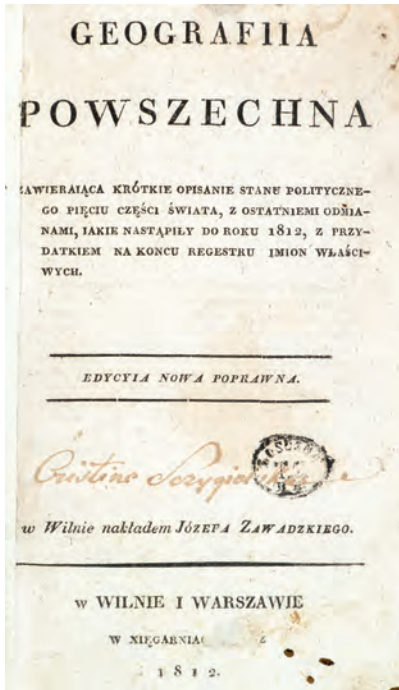 GEOGRAFIIA
POWSZECHNA
ZAWIERAIĄCA KRÓTKIE OPISANIE STANU POLITYCZNE-
GO PIĘCIU CZĘŚCI ŚWIATA, Z OSTATNIEMI ODMIA-
NAMI, IAKIE NASTĄPIŁY DO ROKU 1812, Z PRZY-
DATKIEM NA KONCU REGESTRU IMION WŁAŚCI-
WYCH.
EDYCYIA NOWA POPRAWNA.
w Wilnie nakładem JÓZEFA ZAWADZKIEGO.
w WILNIE I WARSZAWIE
W XIĘGARNIA
1812.